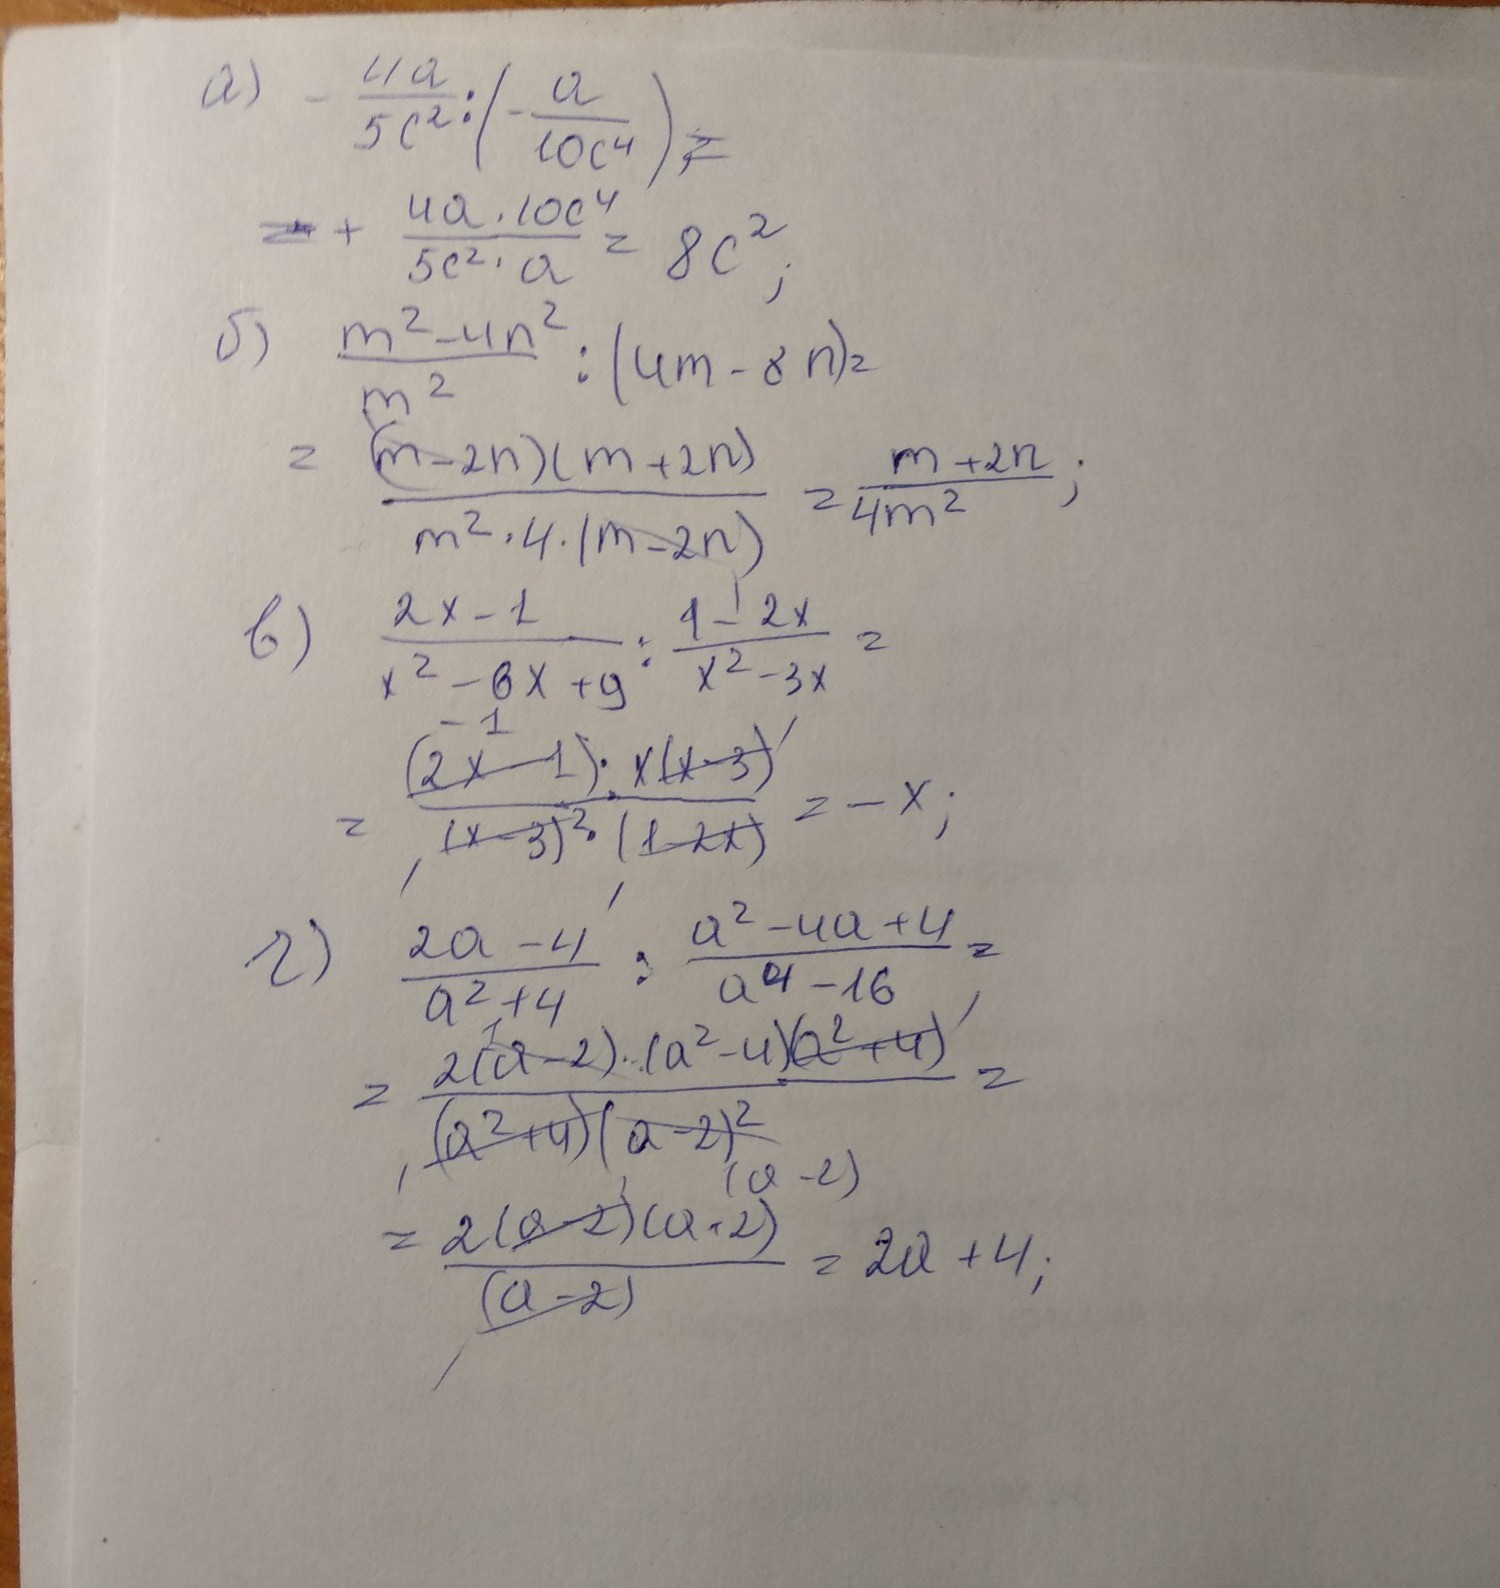 а) - 4a/5c² : (- a/10c⁴) =
= + 4a · 10c⁴/5c² · a = 8c²;
б) m² - 4n²/m² : (4m - 8n) =
= (m - 2n)(m + 2n)/m² · 4 · (m - 2n) = m + 2n/4m²;
в) 2x - 1/x² - 6x + 9 : 1 - 2x/x² - 3x =
-1
= (2x - 1) · x(x - 3)/(x - 3)² · (1 - 2x) = - x;
г) 2a - 4/a² + 4 : a² - 4a + 4/a⁴ - 16 =
= 2(a - 2) · (a² - 4)(a² + 4)/(a² + 4)(a - 2)² =
(a - 2)
= 2(a - 2)(a + 2)/(a - 2) = 2a + 4;